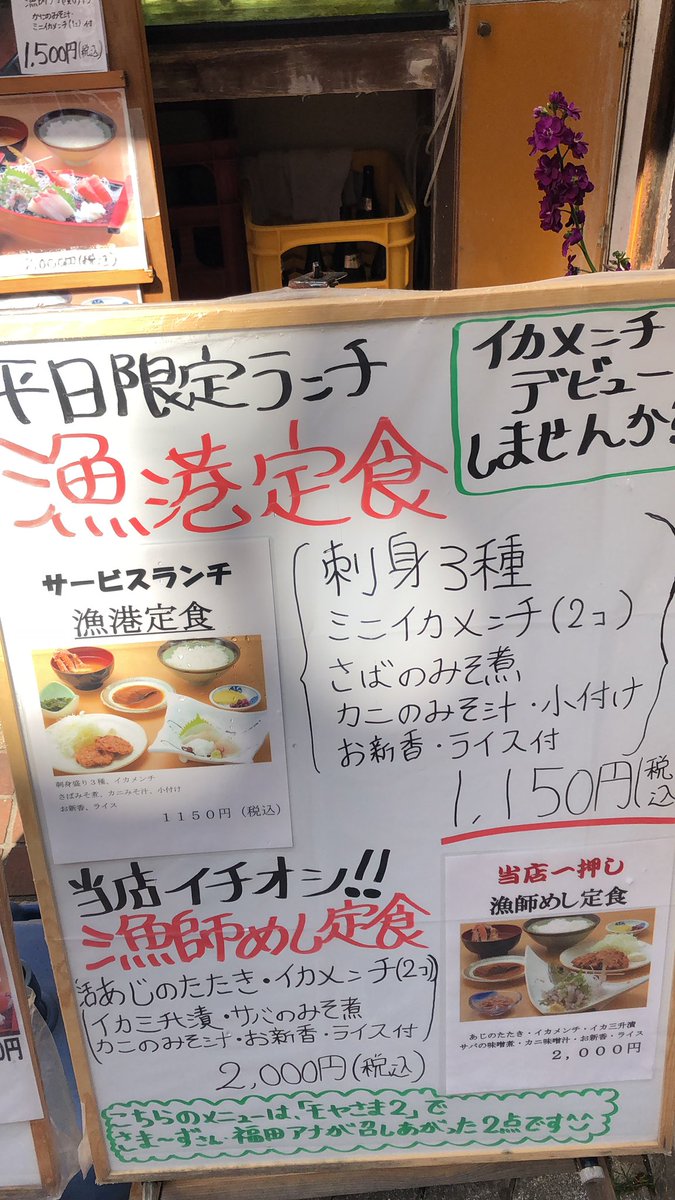 かにのみそ汁・
ミニイカメンチ(1コ)付
1,500円(税込)
平日限定ランチ
漁港定食
イカメンチ
デビュー
しませんか?
サービスランチ
漁港定食
刺身盛り3種、イカメンチ
さばみそ煮、カニみそ汁、小付け
お新香、ライス
1150円(税込)
刺身3種
ミニイカメンチ(2コ)
さばのみそ煮
カニのみそ汁・小付け
お新香・ライス付
1,150円(税込
当店イチオシ!!
漁師めし定食
活あじのたたき・イカメンチ(2コ)
イカ三升漬・サバのみそ煮
カニのみそ汁・お新香・ライス付
2,000円(税込)
当店一押し
漁師めし定食
あじのたたき・イカメンチ・イカ三升漬
サバの味噌煮・カニ味噌汁・お新香・ライス
2,000円
こちらのメニューは「モヤさま2」で
さまぁ~ずさん・福田アナが召しあがった2点です^^